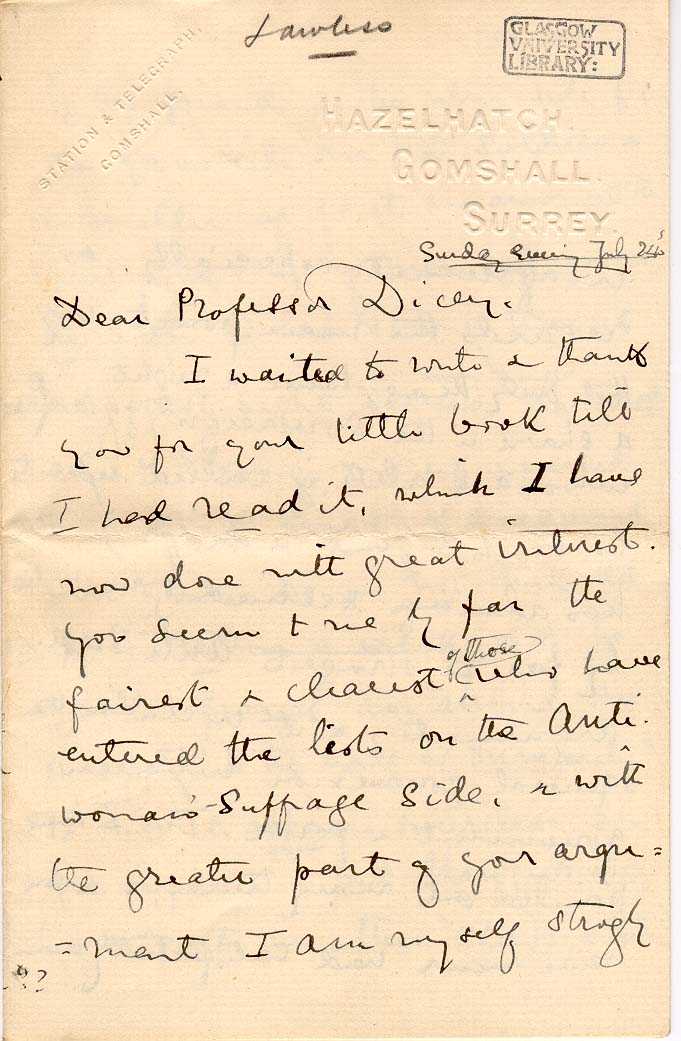 Lawless
GLASGOW
UNIVERSITY
LIBRARY:
STATION & TELEGRAPH,
GOMSHALL.
HAZELHATCH,
GOMSHALL.
SURREY.
Sunday evening July 24
Dear Professor Dicey.
I waited to write & thank
you for your little book till
I had read it, which I have
now done with great interest.
You seem to me by far the
fairest & clearest of those who have
entered the lists on the Anti-
woman's-Suffrage side, & with
the greater part of your argu=
=ment I am myself strongly
??